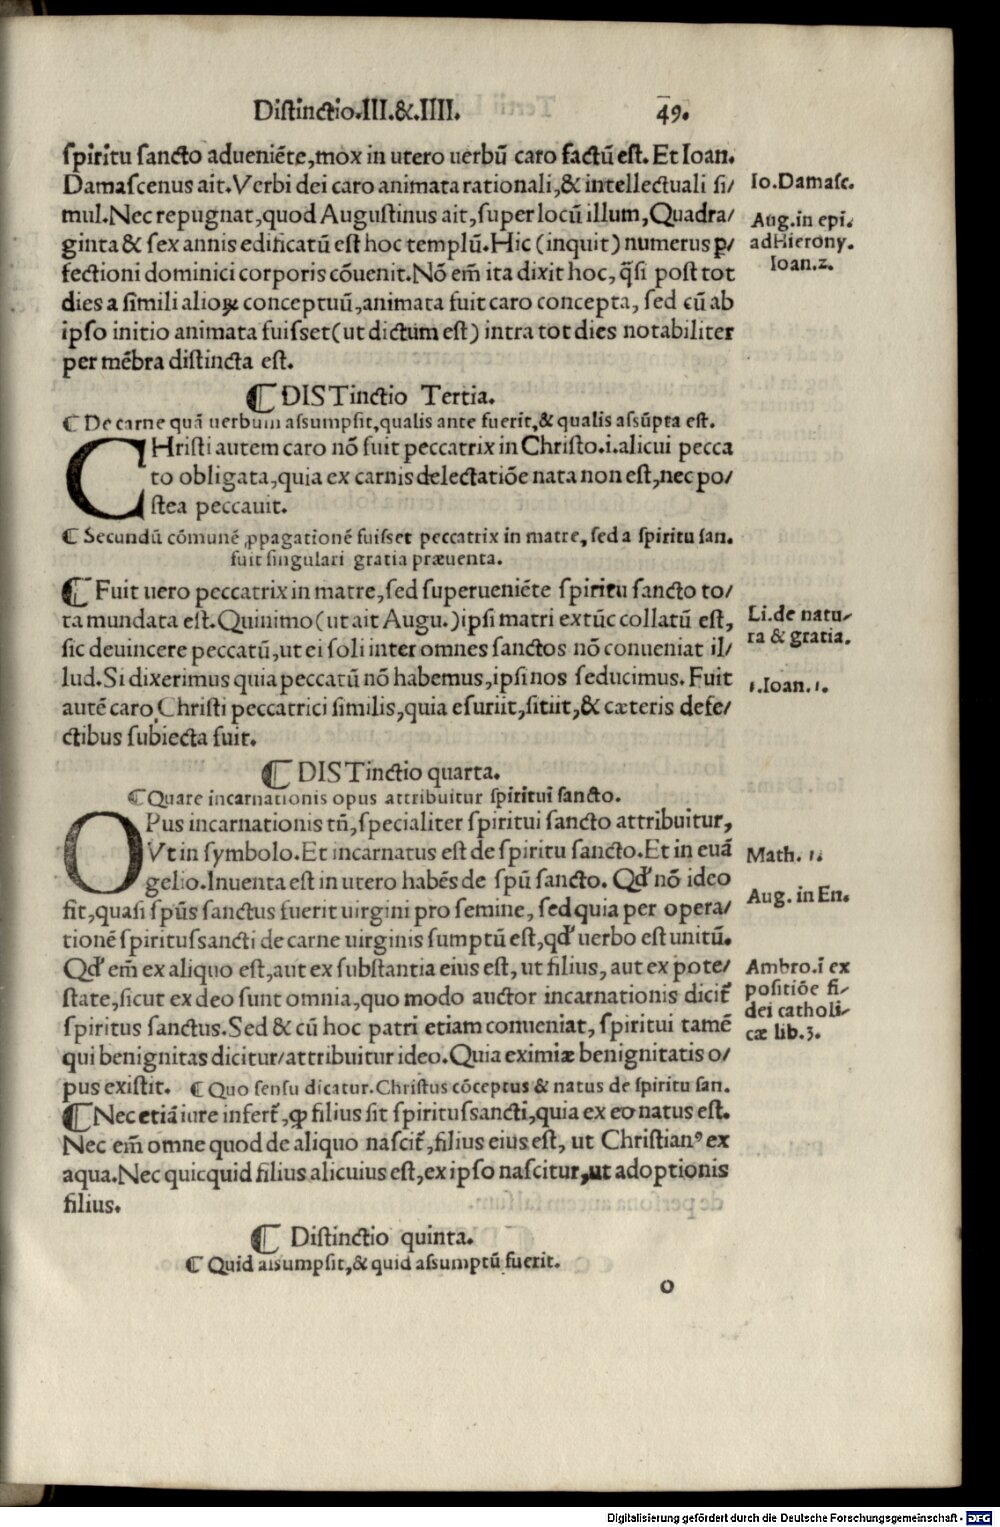 Distinctio.III.&.IIII. 49.
spiritu sancto adueniẽte,mox in utero uerbũ caro factũ est. Et Ioan.
Damascenus ait.Verbi dei caro animata rationali,& intellectuali si/
mul.Nec repugnat,quod Augustinus ait,super locũ illum,Quadra/
ginta & sex annis edificatũ est hoc templũ.Hic (inquit) numerus ꝑ/
fectioni dominici corporis cõuenit.Nõ em̃ ita dixit hoc, q̃si post tot
dies a simili alioꝝ conceptuũ,animata fuit caro concepta, sed cũ ab
ipso initio animata fuisset(ut dictum est) intra tot dies notabiliter
per mẽbra distincta est.
Io.Damasc.
Aug.in epi.
ad Hierony.
Ioan.2.
¶ DISTinctio Tertia.
¶ De carne quã uerbum assumpsit,qualis ante fuerit,& qualis assũpta est.
CHristi autem caro nõ fuit peccatrix in Christo.i.alicui pecca
to obligata,quia ex carnis delectatiõe nata non est,nec po/
stea peccauit.
¶ Secundũ cõmunẽ ꝓpagationẽ fuisset peccatrix in matre, sed a spiritu san.
fuit singulari gratia præuenta.
¶ Fuit uero peccatrix in matre, sed superueniẽte spiritu sancto to/
ta mundata est.Quinimo(ut ait Augu.)ipsi matri extũc collatũ est,
sic deuincere peccatũ,ut ei soli inter omnes sanctos nõ conueniat il/
lud.Si dixerimus quia peccatũ nõ habemus,ipsi nos seducimus. Fuit
autẽ caro Christi peccatrici similis,quia esuriit,sitiit,& cæteris defe/
ctibus subiecta fuit.
Li.de natu/
ra & gratia.
1.Ioan.1.
¶ DISTinctio quarta.
¶ Quare incarnationis opus attribuitur spiritui sancto.
OPus incarnationis tñ,specialiter spiritui sancto attribuitur,
Vt in symbolo.Et incarnatus est de spiritu sancto.Et in euã
gelio.Inuenta est in utero habẽs de spũ sancto. Qđ nõ ideo
fit,quasi spũs sanctus fuerit uirgini pro semine, sed quia per opera/
tionẽ spiritussancti de carne uirginis sumptũ est,qđ uerbo est unitũ.
Qđ em̃ ex aliquo est,aut ex substantia eius est, ut filius, aut ex pote/
state,sicut ex deo sunt omnia,quo modo auctor incarnationis dicit̃
spiritus sanctus.Sed & cũ hoc patri etiam conueniat, spiritui tamẽ
qui benignitas dicitur/attribuitur ideo.Quia eximiæ benignitatis o/
pus existit. ¶ Quo sensu dicatur.Christus cõceptus & natus de spiritu san.
¶ Nec etiã iure infert̃,ꝙ filius sit spiritussancti,quia ex eo natus est.
Nec em̃ omne quod de aliquo nascit̃,filius eius est, ut Christianꝰ ex
aqua.Nec quicquid filius alicuius est,ex ipso nascitur,ut adoptionis
filius.
Math. 1.
Aug. in En.
Ambro.ĩ ex
positiõe fi/
dei catholi/
cæ lib.3.
¶ Distinctio quinta.
¶ Quid assumpsit,& quid assumptũ fuerit.
o
Digitalisierung gefördert durch die Deutsche Forschungsgemeinschaft - DFG